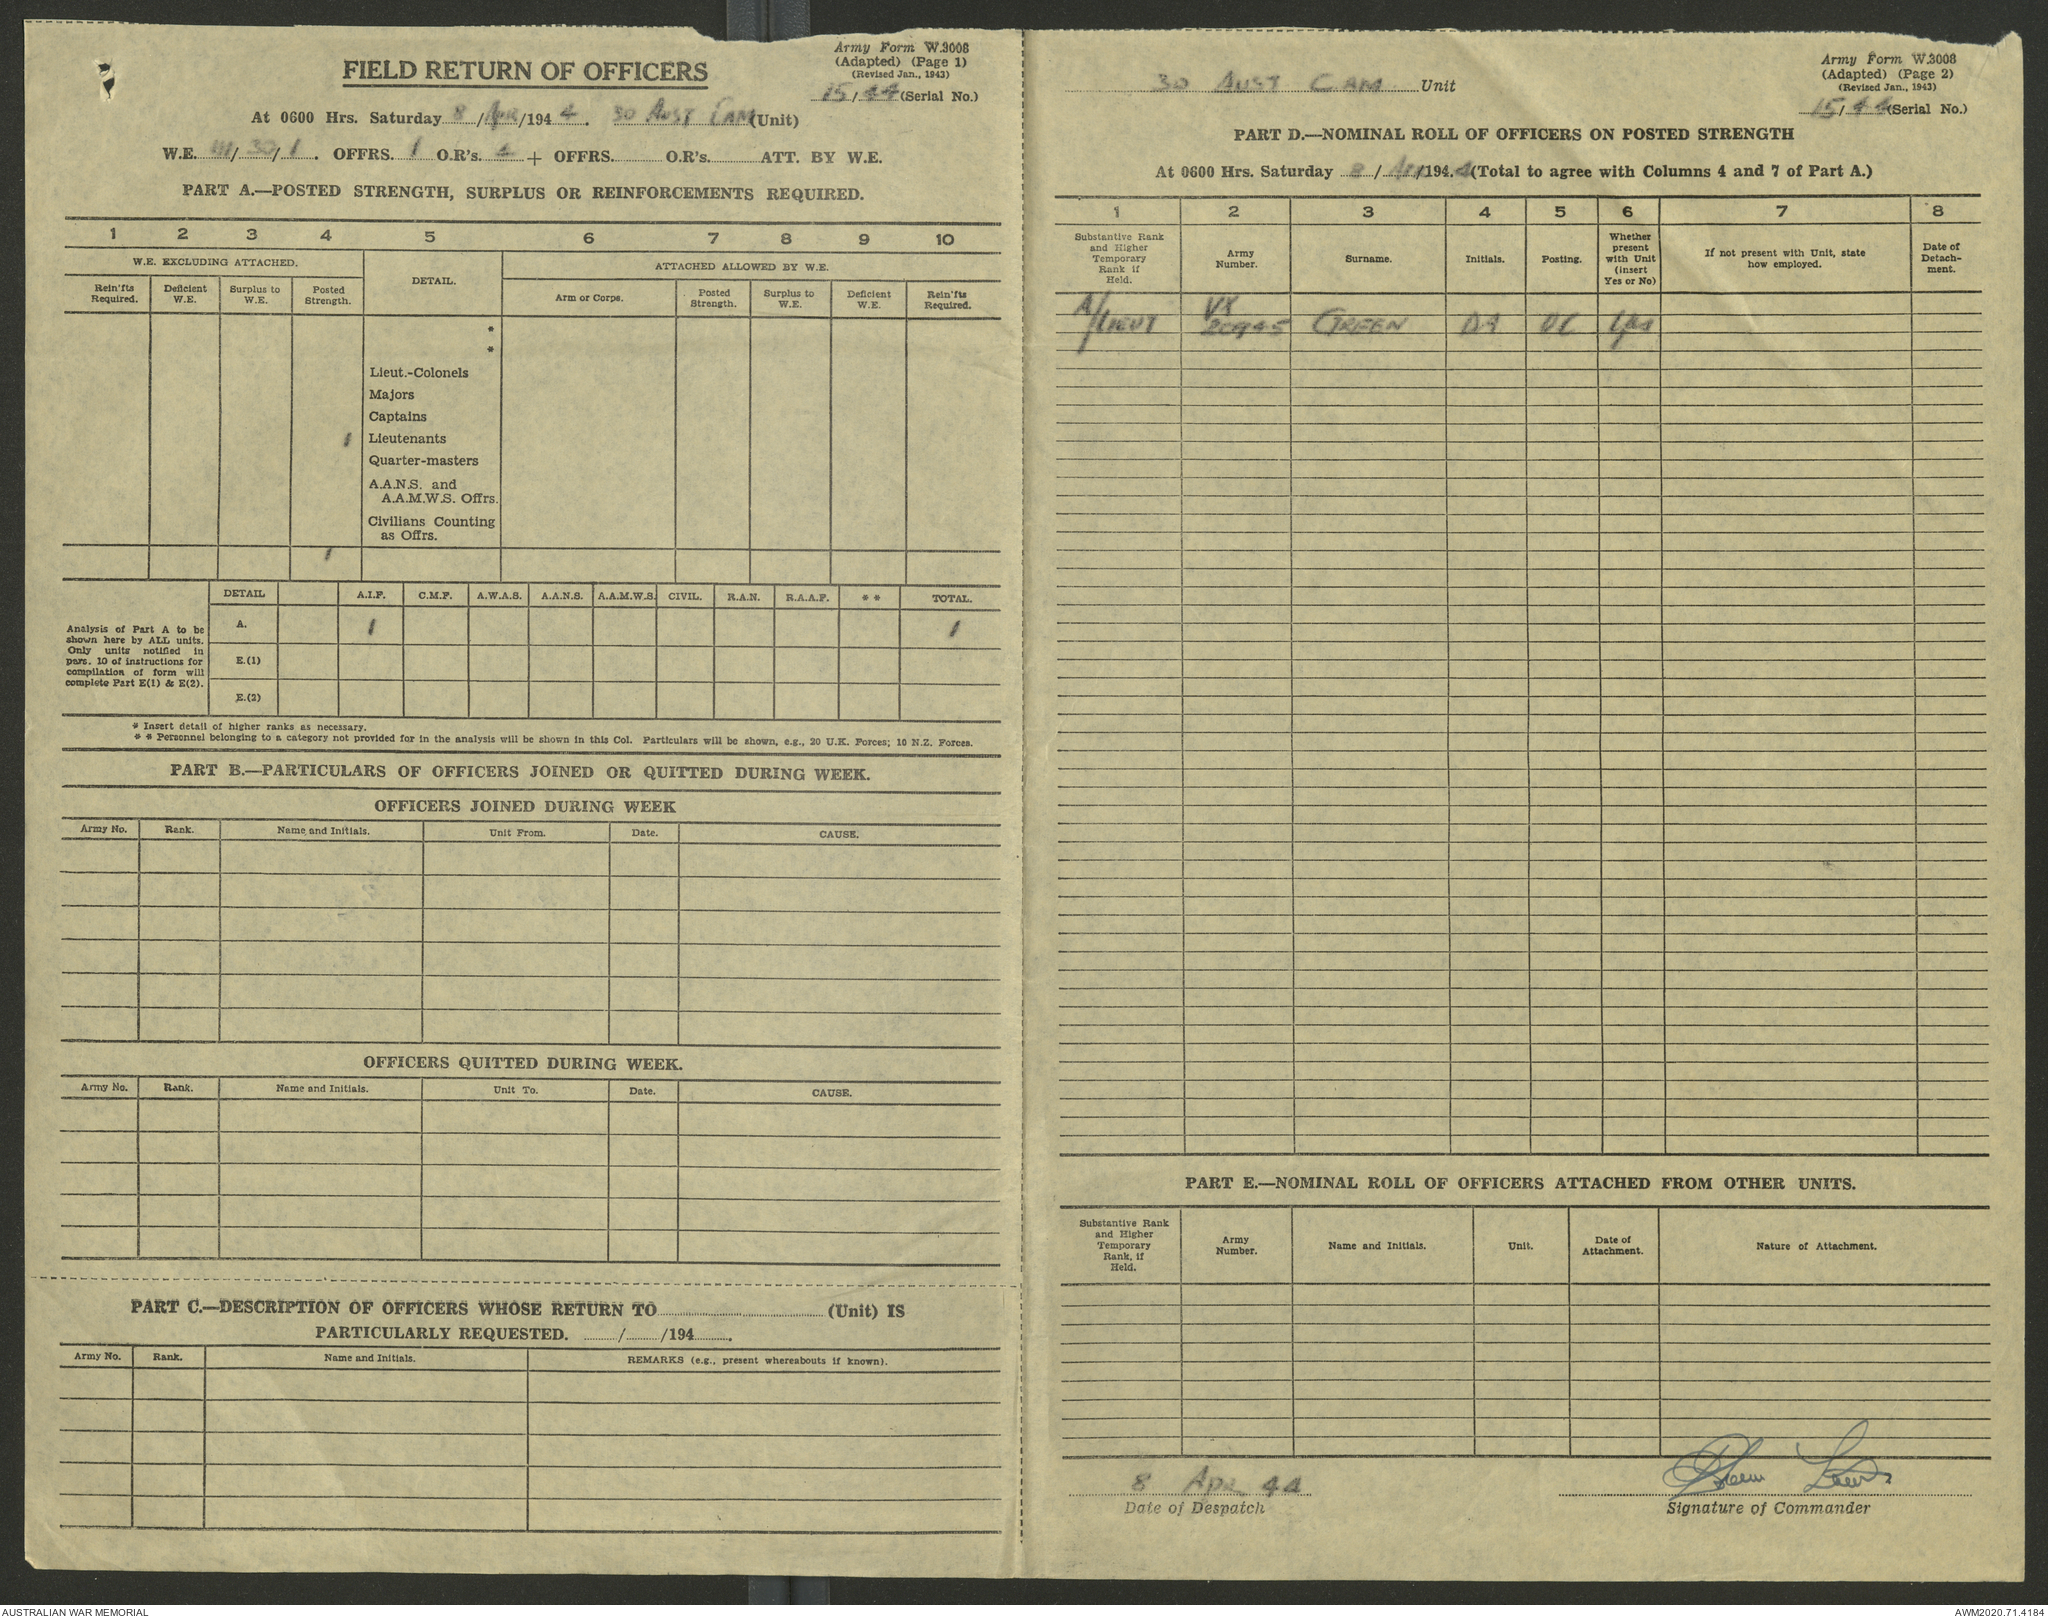 Army Form W.3008
(Adapted) (Page 1)
(Revised Jan., 1943)
15/44 (Serial No.)
FIELD RETURN OF OFFICERS
At 0600 Hrs. Saturday 8/Apr/1944. 30 Aust Cam (Unit)
W.E. III/30/1. OFFRS. 1 O.R's. 4 + OFFRS. O.R's. ATT. BY W.E.
PART A.—POSTED STRENGTH, SURPLUS OR REINFORCEMENTS REQUIRED.
1 2 3 4 5 6 7 8 9 10
W.E. EXCLUDING ATTACHED. DETAIL. ATTACHED ALLOWED BY W.E.
Rein'fts Required. Deficient W.E. Surplus to W.E. Posted Strength. Arm or Corps. Posted Strength. Surplus to W.E. Deficient W.E. Rein'fts Required.
*
*
Lieut.-Colonels
Majors
Captains
1 Lieutenants
Quarter-masters
A.A.N.S. and
A.A.M.W.S. Offrs.
Civilians Counting
as Offrs.
1
DETAIL A.I.F. C.M.F. A.W.A.S. A.A.N.S. A.A.M.W.S. CIVIL. R.A.N. R.A.A.F. * * TOTAL.
Analysis of Part A to be
shown here by ALL units.
Only units notified in
para. 10 of instructions for
compilation of form will
complete Part E(1) & E(2).
A. 1 1
E.(1)
E.(2)
* Insert detail of higher ranks as necessary.
* * Personnel belonging to a category not provided for in the analysis will be shown in this Col. Particulars will be shown, e.g., 20 U.K. Forces; 10 N.Z. Forces.
PART B.—PARTICULARS OF OFFICERS JOINED OR QUITTED DURING WEEK.
OFFICERS JOINED DURING WEEK
Army No. Rank. Name and Initials. Unit From. Date. CAUSE.
OFFICERS QUITTED DURING WEEK.
Army No. Rank. Name and Initials. Unit To. Date. CAUSE.
PART C.—DESCRIPTION OF OFFICERS WHOSE RETURN TO (Unit) IS
PARTICULARLY REQUESTED. / /194 .
Army No. Rank. Name and Initials. REMARKS (e.g., present whereabouts if known).
Army Form W.3008
(Adapted) (Page 2)
(Revised Jan., 1943)
30 Aust Cam Unit
15/44 (Serial No.)
PART D.—NOMINAL ROLL OF OFFICERS ON POSTED STRENGTH
At 0600 Hrs. Saturday 8/Apr/1944 (Total to agree with Columns 4 and 7 of Part A.)
1 2 3 4 5 6 7 8
Substantive Rank and Higher Temporary Rank if Held. Army Number. Surname. Initials. Posting. Whether present with Unit (insert Yes or No) If not present with Unit, state how employed. Date of Detach- ment.
A/LIEUT VX 20945 GREEN DA OC Yes
PART E.—NOMINAL ROLL OF OFFICERS ATTACHED FROM OTHER UNITS.
Substantive Rank and Higher Temporary Rank, if Held. Army Number. Name and Initials. Unit. Date of Attachment. Nature of Attachment.
8 Apr 44
Date of Despatch
Signature of Commander
AUSTRALIAN WAR MEMORIAL
AWM2020.71.4184